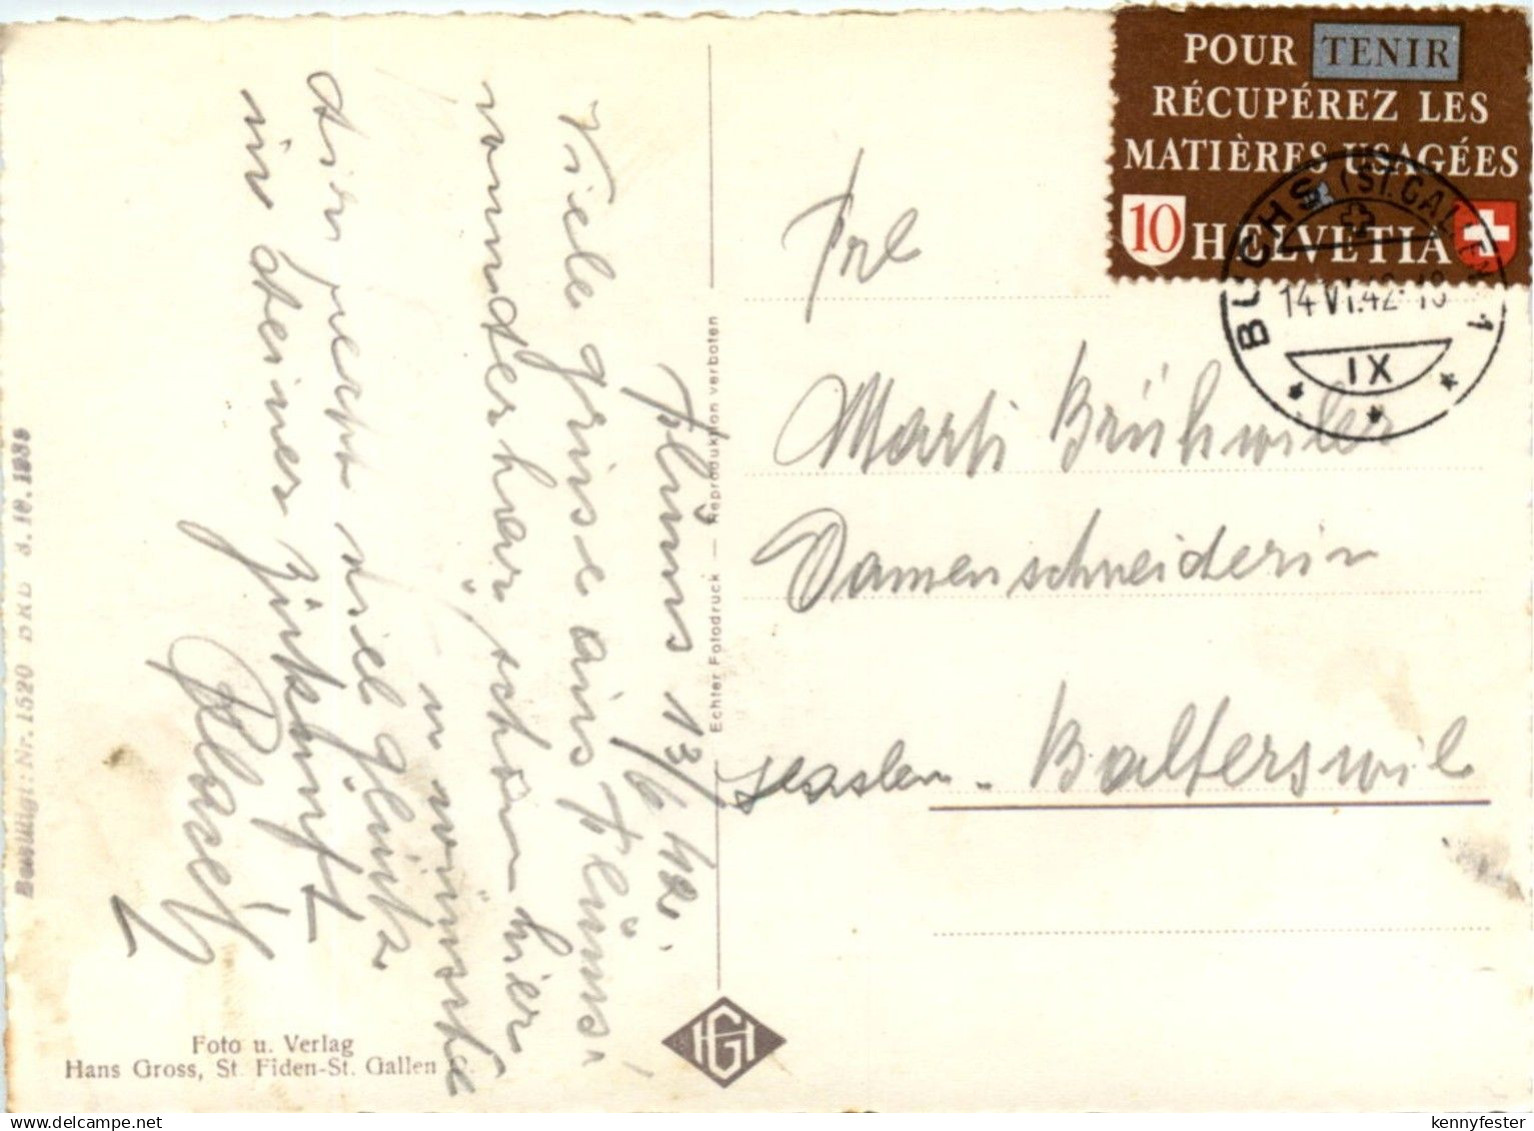 POUR TENIR
RÉCUPÉREZ LES
MATIÈRES USAGÉES
10 HELVETIA
BUCHS (ST. GALLEN) 1
14.VI.42-18
IX
Frl
Marti Brühwiler
Damenschneiderin
Balterswil
Flums 13/6 42.
Viele grüse aus Flums.
wunderbar, schön hier
u wünsche
dir recht viel glück
in deiner zukunft
Echter Fotodruck — Reproduktion verboten
HG
Foto u. Verlag
Hans Gross, St. Fiden-St. Gallen
Bewilligt: Nr. 1520 BRB 3.10.1939
kennyfester